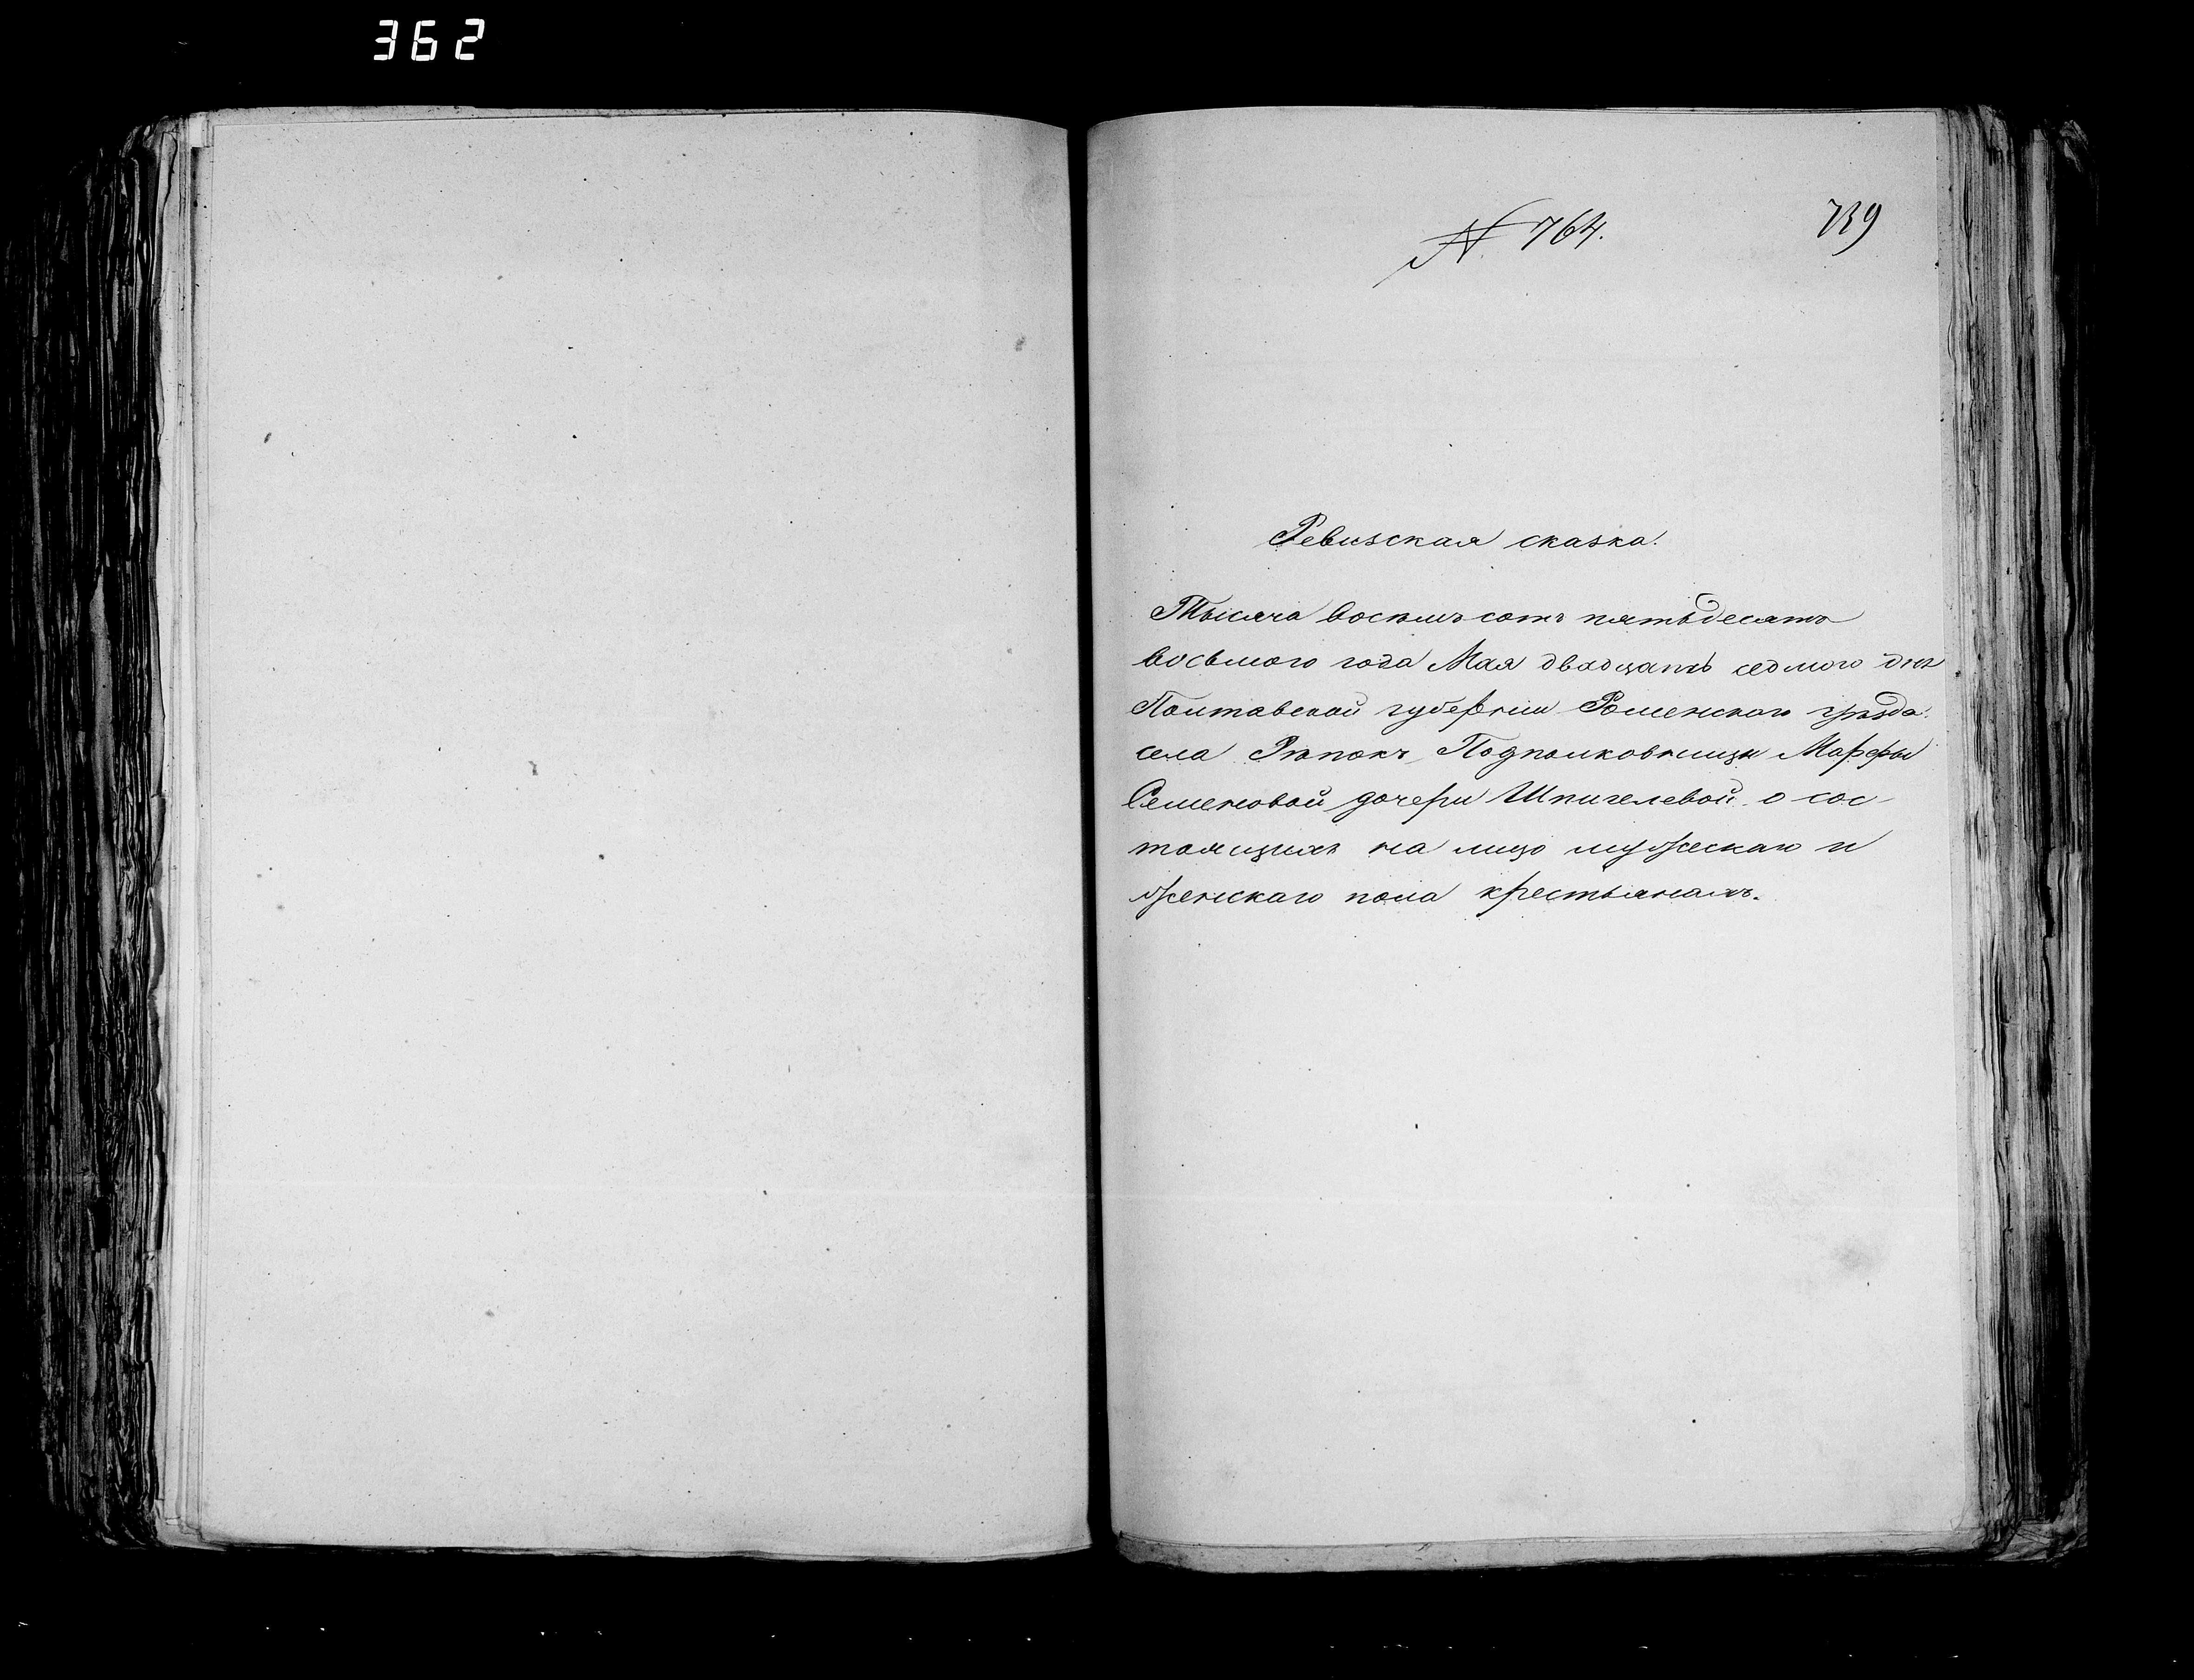 362
№ 764.
739
Ревизская сказка.
Тысяча восемъ сотъ пятьдесятъ
восьмого года Мая двадцать седмого дня
Полтавской губернiи Роменского уѣзда
села Рѣпокъ Подполковницы Марфы
Семеновой дочери Шпигелевой о сос-
тоящихъ на лицо мужескаго и
женскаго пола крестьянахъ.